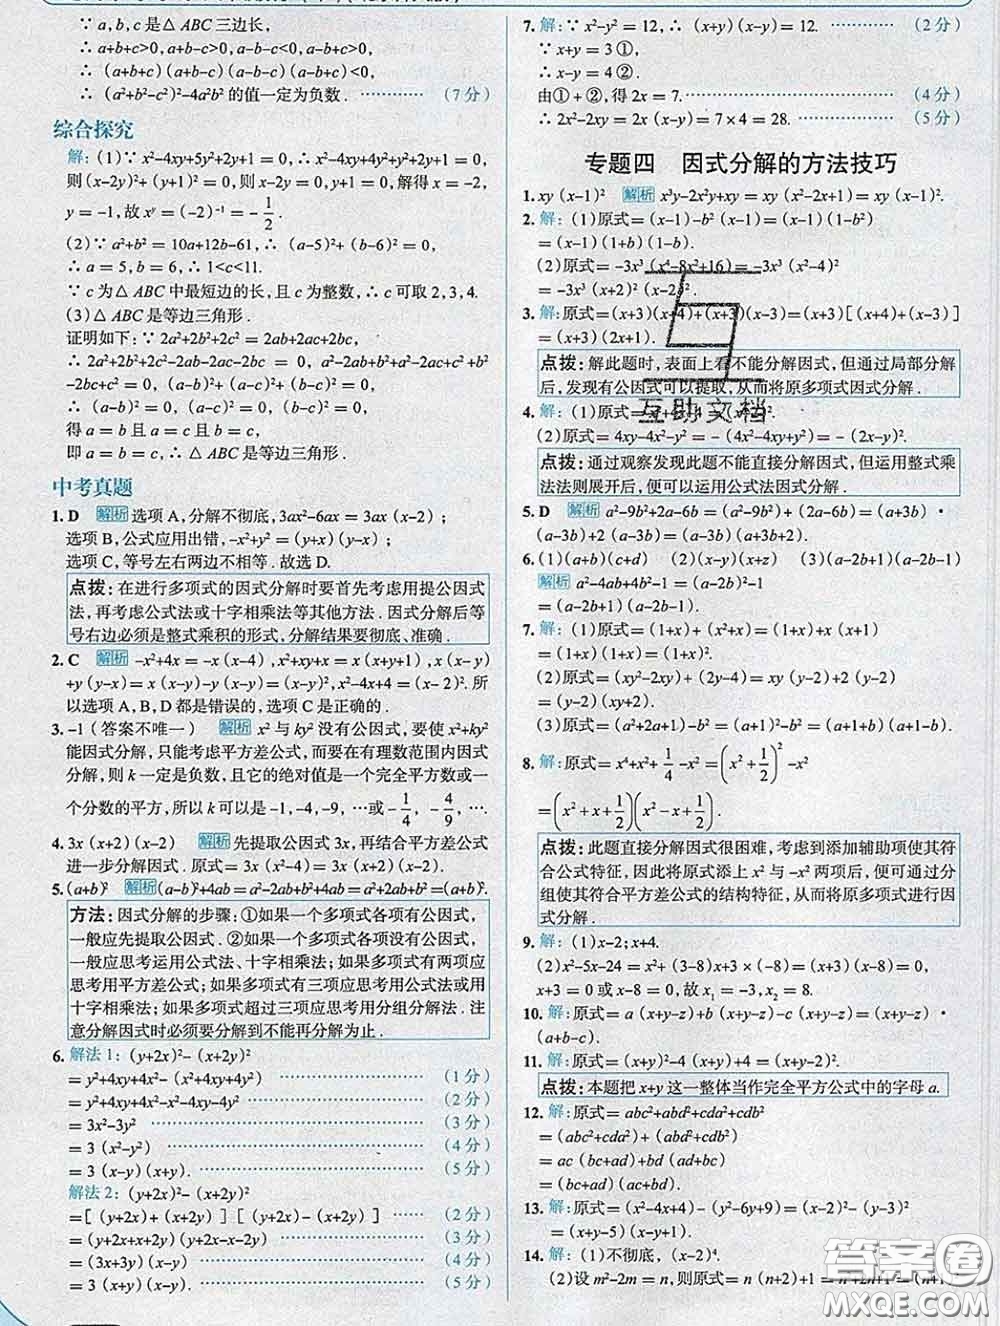 ∵ a, b, c 是△ ABC 三边长,
∴ a+b+c>0, a+b-c>0, a-b-c<0, a-b+c>0,
∴ (a+b+c)(a+b-c)(a-b-c)(a-b+c)<0,
∴ (a²+b²-c²)²-4a²b² 的值一定为负数. ………… (7 分)
综合探究
解: (1)∵ x²-4xy+5y²+2y+1=0, ∴ x²-4xy+4y²+y²+2y+1=0,
则(x-2y)²+(y+1)²=0, 则 x-2y=0, y+1=0, 解得 x=-2,
y=-1, 故 xʸ=(-2)⁻¹=-1/2.
(2)∵ a²+b²=10a+12b-61, ∴ (a-5)²+(b-6)²=0,
∴ a=5, b=6, ∴ 1<c<11.
∵ c 为△ ABC 中最短边的长, 且 c 为整数, ∴ c 可取 2, 3, 4.
(3)△ ABC 是等边三角形.
证明如下: ∵ 2a²+2b²+2c²=2ab+2ac+2bc,
∴ 2a²+2b²+2c²-2ab-2ac-2bc=0, a²-2ab+b²+a²-2ac+c²+b²
-2bc+c²=0, (a-b)²+(a-c)²+(b-c)²=0,
∴ (a-b)²=0, (a-c)²=0, (b-c)²=0,
得 a=b 且 a=c 且 b=c,
即 a=b=c, ∴ △ ABC 是等边三角形.
中考真题
1. D 解析 选项 A, 分解不彻底, 3ax²-6ax=3ax(x-2);
选项 B, 公式应用出错, -x²+y²=(y+x)(y-x);
选项 C, 等号左右两边不相等. 故选 D.
点拨: 在进行多项式的因式分解时要首先考虑用提公因式
法, 再考虑公式法或十字相乘法等其他方法. 因式分解后等
号右边必须是整式乘积的形式, 分解结果要彻底、准确.
2. C 解析 -x²+4x=-x(x-4), x²+xy+x=x(x+y+1), x(x-y)
+y(y-x)=x(x-y)-y(x-y)=(x-y)², x²-4x+4=(x-2)². 所
以选项 A、B、D 都是错误的, 选项 C 是正确的.
3. -1(答案不唯一) 解析 x² 与 ky² 没有公因式, 要使 x²+ky²
能因式分解, 只能考虑平方差公式, 而要在有理数范围内因式
分解, 则 k 一定是负数, 且它的绝对值是一个完全平方数或一
个分数的平方, 所以 k 可以是 -1, -4, -9, …或 -1/4, -4/9, ….
4. 3x(x+2)(x-2) 解析 先提取公因式 3x, 再结合平方差公式
进一步分解因式. 原式=3x(x²-4)=3x(x+2)(x-2).
5. (a+b)² 解析 (a-b)²+4ab=a²-2ab+b²+4ab=a²+2ab+b²=(a+b)².
方法: 因式分解的步骤: ①如果一个多项式各项有公因式,
一般应先提取公因式. ②如果一个多项式各项没有公因式,
一般应思考运用公式法、十字相乘法; 如果多项式有两项应
思考用平方差公式, 如果多项式有三项应思考用公式法或用
十字相乘法; 如果多项式超过三项应思考用分组分解法. 注
意分解因式时必须要分解到不能再分解为止.
6. 解法 1: (y+2x)²-(x+2y)²
=y²+4xy+4x²-(x²+4xy+4y²) ………… (1 分)
=y²+4xy+4x²-x²-4xy-4y² ………… (2 分)
=3x²-3y² ………… (3 分)
=3(x²-y²) ………… (4 分)
=3(x-y)(x+y). ………… (5 分)
解法 2: (y+2x)²-(x+2y)²
=[(y+2x)+(x+2y)][(y+2x)-(x+2y)] ……… (2 分)
=(y+2x+x+2y)(y+2x-x-2y) ………… (3 分)
=(3x+3y)(x-y) ………… (4 分)
=3(x+y)(x-y). ………… (5 分)
7. 解: ∵ x²-y²=12, ∴ (x+y)(x-y)=12. ……… (2 分)
∵ x+y=3 ①,
∴ x-y=4 ②.
由①+②, 得 2x=7. ………… (4 分)
∴ 2x²-2xy=2x(x-y)=7×4=28. ………… (5 分)
专题四 因式分解的方法技巧
1. xy(x-1)² 解析 x³y-2x²y+xy=xy(x²-2x+1)=xy(x-1)².
2. 解: (1)原式=(x-1)-b²(x-1)=(x-1)(1-b²)
=(x-1)(1+b)(1-b).
(2)原式=-3x³(x⁴-8x²+16)=-3x³(x²-4)²
=-3x³(x+2)²(x-2)².
3. 解: 原式=(x+3)(x+4)+(x+3)(x-3)=(x+3)[(x+4)+(x-3)]
=(x+3)(2x+1).
点拨: 解此题时, 表面上看不能分解因式, 但通过局部分解
后, 发现有公因式可以提取, 从而将原多项式因式分解.
互助文档
4. 解: (1)原式=x²+4x+4=(x+2)².
(2)原式=4xy-4x²-y²=-(4x²-4xy+y²)=-(2x-y)².
点拨: 通过观察发现此题不能直接分解因式, 但运用整式乘
法法则展开后, 便可以运用公式法因式分解.
5. D 解析 a²-9b²+2a-6b=(a²-9b²)+(2a-6b)=(a+3b)·
(a-3b)+2(a-3b)=(a-3b)(a+3b+2).
6. (1)(a+b)(c+d) (2)(x-y)(x+z) (3)(a-2b+1)(a-2b-1)
解析 a²-4ab+4b²-1=(a-2b)²-1
=(a-2b+1)(a-2b-1).
7. 解: (1)原式=(1+x)+(x+x²)=(1+x)+x(1+x)
=(1+x)(1+x)=(1+x)².
(2)原式=(xy²-2xy)+(2y-4)=xy(y-2)+2(y-2)
=(y-2)(xy+2).
(3)原式=(a²+2a+1)-b²=(a+1)²-b²=(a+1+b)(a+1-b).
8. 解: 原式=x⁴+x²+1/4-x²=(x²+1/2)²-x²
=(x²+x+1/2)(x²-x+1/2).
点拨: 此题直接分解因式很困难, 考虑到添加辅助项使其符
合公式特征, 因此将原式添上 x² 与 -x² 两项后, 便可通过分
组使其符合平方差公式的结构特征, 从而将原多项式进行因
式分解.
9. 解: (1)x-2; x+4.
(2)x²-5x-24=x²+(3-8)x+3×(-8)=(x+3)(x-8)=0,
x+3=0 或 x-8=0, 故 x₁=-3, x₂=8.
10. 解: 原式=a(x+y-z)+b(x+y-z)-c(x+y-z)=(x+y-z)·
(a+b-c).
11. 解: 原式=(x+y)²-4(x+y)+4=(x+y-2)².
点拨: 本题把 x+y 这一整体当作完全平方公式中的字母 a.
12. 解: 原式=abc²+abd²+cda²+cdb²
=(abc²+cda²)+(abd²+cdb²)
=ac(bc+ad)+bd(ad+bc)
=(bc+ad)(ac+bd).
13. 解: 原式=(x²-4x+4)-(y²-6y+9)=(x-2)²-(y-3)²
=(x+y-5)(x-y+1).
14. 解: (1)不彻底, (x-2)⁴.
(2)设 m²-2m=n, 则原式=n(n+2)+1=n²+2n+1=(n+1)²
答案圈
MXQE.COM